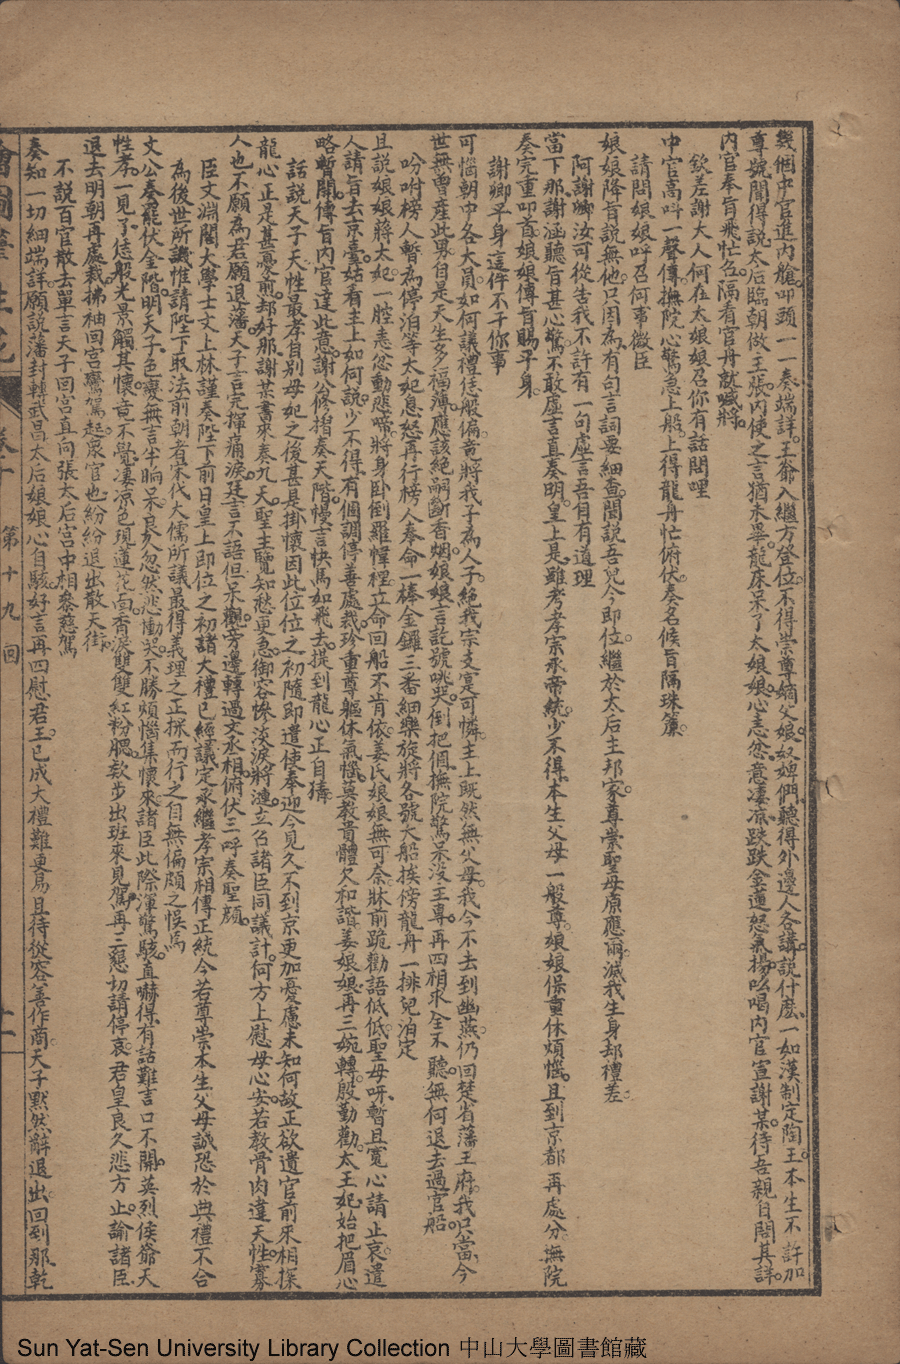 幾個中官進內艙叩頭一一奏端詳王爺入繼方登位不得崇尊嫡父娘奴婢們聽得外邊人各講說什麽一如漢制定陶王本生不許加
尊號聞得說太后臨朝做主張內使之言猶未畢龍床呆了太娘娘心恚忿意凄凉跌跌金蓮怒氣揚吆喝內官宣謝某待吾親自問其詳
內官奉旨飛忙召隔有官舟就喊將
欽差謝大人何在太娘娘召你有話問哩
中官高呌一聲傳撫院心驚急上船上得龍舟忙俯伏奏名候旨隔珠簾
請問娘娘呼召何事微臣
娘娘降旨說無他只因為有句言詞要細查聞說吾兒今即位繼於太后主邦家尊崇聖母原應爾滅我生身却禮差
阿謝卿汝可從吿我不許有一句虛言吾自有道理
當下那謝涵聽旨甚心驚不敢虛言直奏明皇上是雖考孝宗承帝統少不得本生父母一般尊娘娘保重休煩惱且到京都再處分撫院
奏完重叩首娘娘傳旨賜平身
謝卿平身這件不干你事
可惱朝中各大員如何議禮恁般偏竟將我子為人子絕我宗支寔可憐主上既然無父母我今不去到幽燕仍回楚省藩王府我只當今
世無曾産此男自是天生多福薄應該絕嗣斷香烟娘娘言訖號咷哭倒把個撫院驚呆沒主專再四相求全不聽無何退去過官船
吩咐榜人暫為停泊等太妃息怒再行榜人奉命一棒金鑼三番細樂旋將各號大船挨傍龍舟一排兒泊定
且說娘娘蔣太妃一腔恚忿動悲啼將身卧倒羅幃裡立命回船不肯依姜氏娘娘無可奈牀前跪勸語低低聖母呀暫且寬心請止哀遣
人請旨去京臺姑看主上如何說少不得有個調停善處裁珍重尊軀休氣惱莫教貴體欠和諧姜娘娘再三婉轉殷勤勸太王妃始把眉心
略暫開傳旨內官達此意謝公修摺奏天階慢言快馬如飛去提到龍心正自猜
話說天子天性最孝自別母妃之後甚是掛懷因此位位之初隨即遣使奉迎今見久不到京更加憂慮未知何故正欲遣官前來相探
龍心正是甚憂煎却好那謝某書來奏九天聖主覽知愁更急御容慘淡淚將漣立召諸臣同議計何方上慰母心安若教骨肉違天性寡
人也不願為君願退藩天子言完揮痛淚廷言不語但呆觀旁邊轉過文丞相俯伏三呼奏聖顏
臣文淵閣大學士文上林謹奏陛下前日皇上即位之初諸大禮已經議定承繼孝宗相傳正統今若尊崇本生父母誠恐於典禮不合
為後世所譏惟請陛下取法前朝者宋代大儒所議最得義理之正採而行之自無偏頗之悮焉
文公奏罷伏金階明天子色變無言半晌呆良久忽然悲慟哭不勝煩惱集懷來諸臣此際渾驚駭直嚇得有話難言口不開英烈侯爺天
性孝一見了恁般光景觸其懷竟不覺凄凉色現蓮花面香淚雙雙紅粉腮欵步出班來見駕再三懇切請停哀君皇良久悲方止諭諸臣
退去明朝再處裁拂袖回宮鸞駕起衆官也紛紛退出散天街
不說百官散去單言天子回宮直向張太后宮中相叅慈駕
奏知一切細端詳願說藩封轉武昌太后娘娘心自駭好言再四慰君王已成大禮難更易且待從容善作商天子默然辭退出回到那乾
繪圖筆生花
卷十
第十九回
十一
Sun Yat-Sen University Library Collection 中山大學圖書館藏